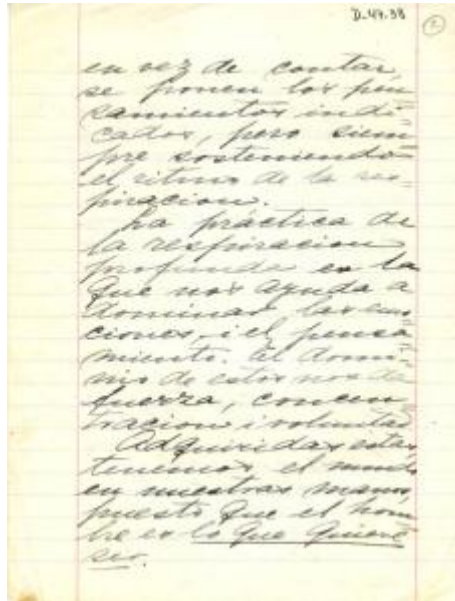 D-49.38
2
en vez de contar,
se ponen los pen
samientos indi-
cados, pero siem
pre sosteniendo
el ritmo de la res-
piracion.
La práctica de
la respiracion
profunda es la
que nos ayuda a
dominar, las emo
ciones, i el pensa-
miento. El domi-
nio de estos nos da
fuerza, concen
tracion i voluntad
Adquiridas estas,
tenemos el mundo
en nuestras manos,
puesto que el hom
bre es lo que quiere
ser.